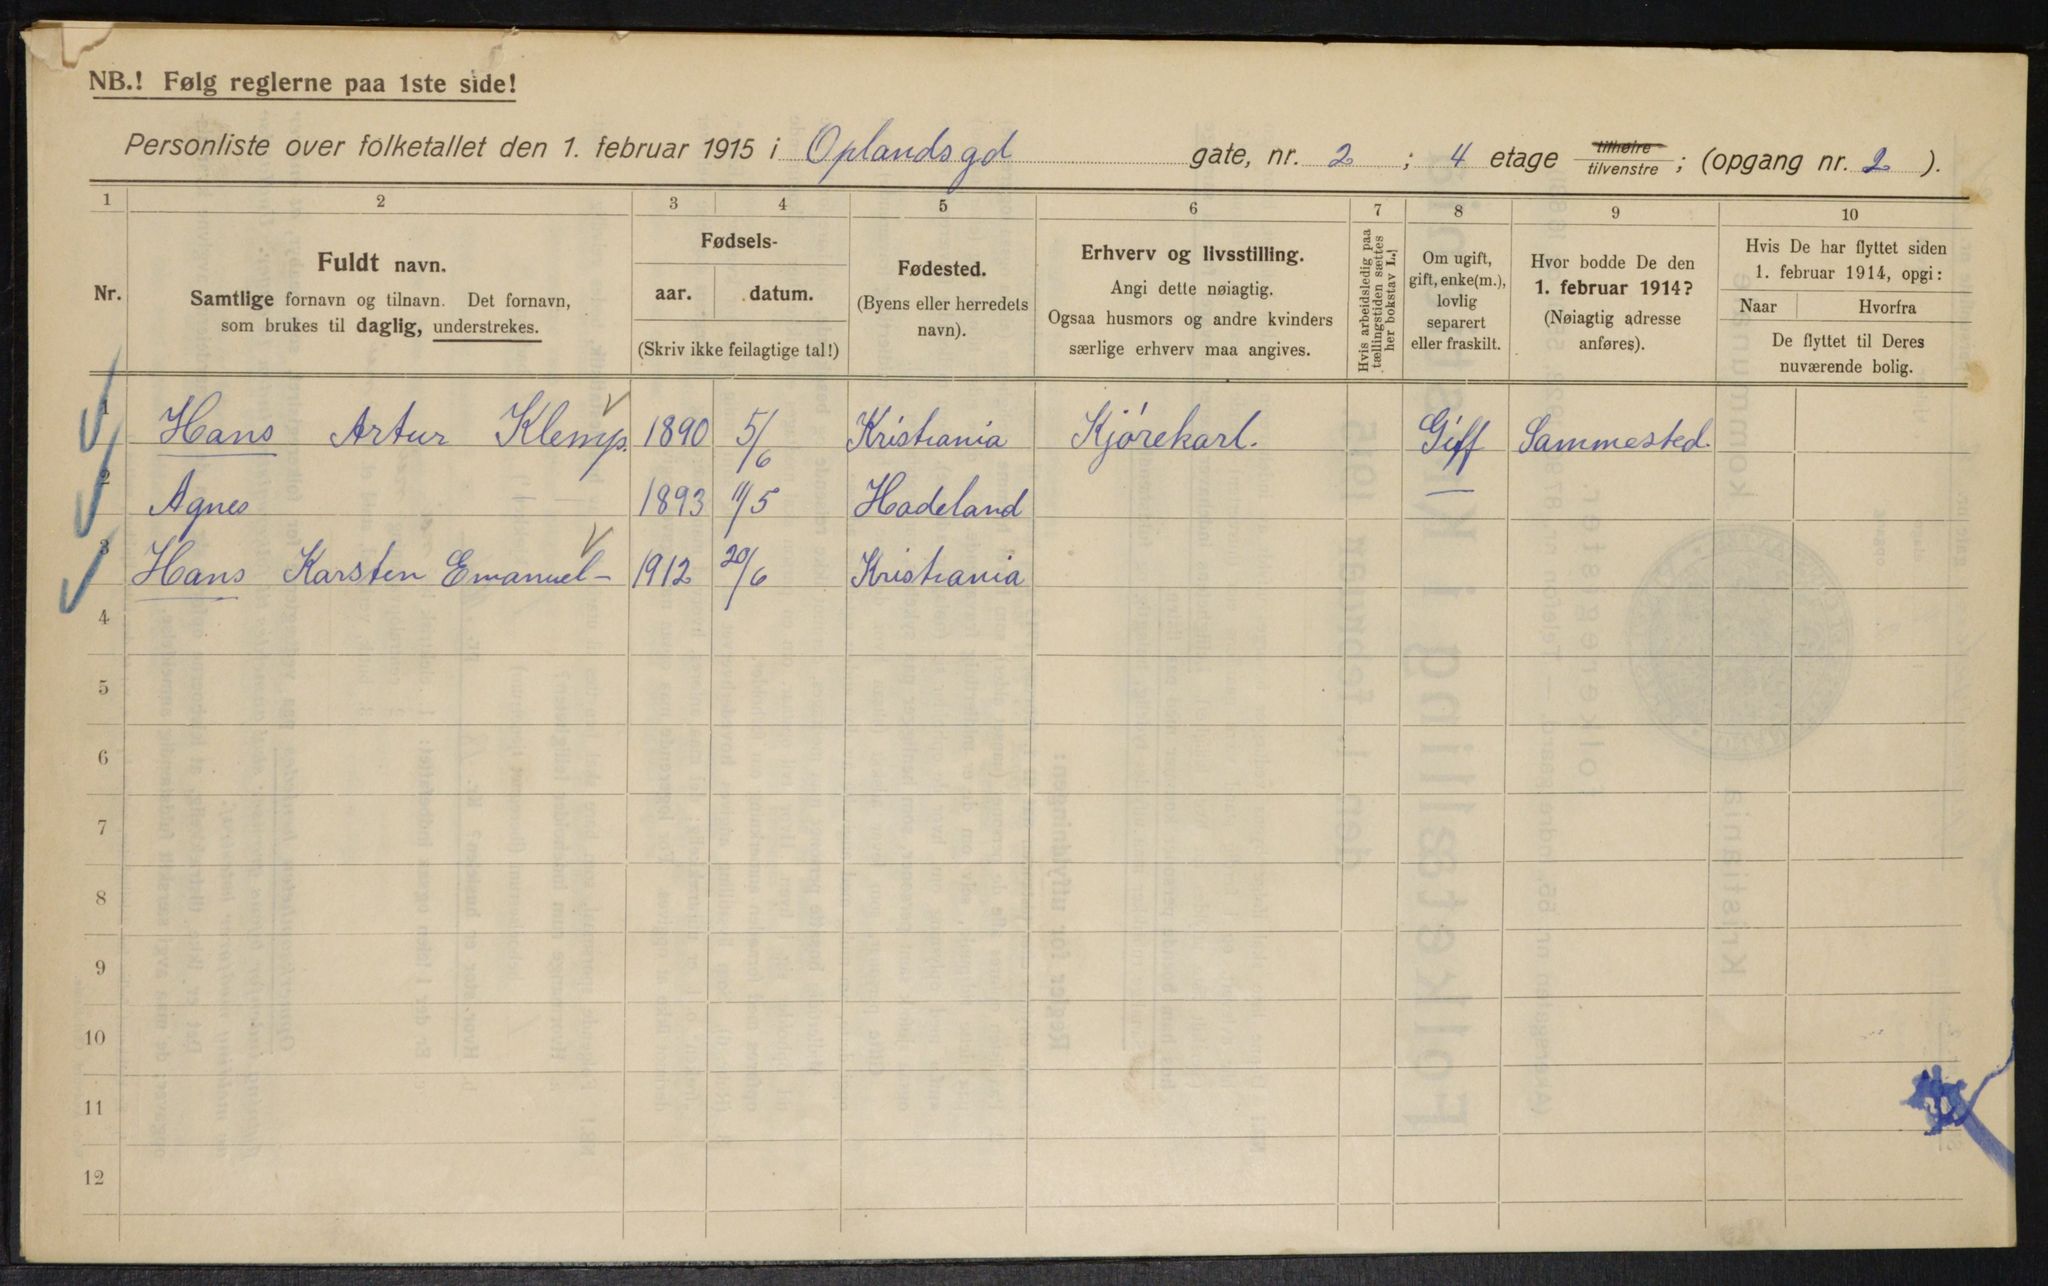 NB.! Følg reglerne paa 1ste side!
Personliste over folketallet den 1. februar 1915 i Oplandsgd gate, nr. 2 ; 4 etage tilhøire tilvenstre ; (opgang nr. 2 ).
1 2 3 4 5 6 7 8 9 10
Nr.
Fuldt navn.
Samtlige fornavn og tilnavn. Det fornavn,
som brukes til daglig, understrekes.
Fødsels-
aar. datum.
(Skriv ikke feilagtige tal!)
Fødested.
(Byens eller herredets
navn).
Erhverv og livsstilling.
Angi dette nøiagtig.
Ogsaa husmors og andre kvinders
særlige erhverv maa angives.
Hvis arbeidsledig paa
tællingstiden sættes
her bokstav L.!
Om ugift,
gift, enke(m.),
lovlig
separert
eller fraskilt.
Hvor bodde De den
1. februar 1914?
(Nøiagtig adresse
anføres).
Hvis De har flyttet siden
1. februar 1914, opgi:
Naar Hvorfra
De flyttet til Deres
nuværende bolig.
1 Hans Artur Klemp. 1890 5/6 Kristiania Kjørekarl. Gift Sammested.
2 Agnes 1893 11/5 Hadeland
3 Hans Karsten Emanuel - 1912 20/6 Kristiania
4
5
6
7
8
9
10
11
12